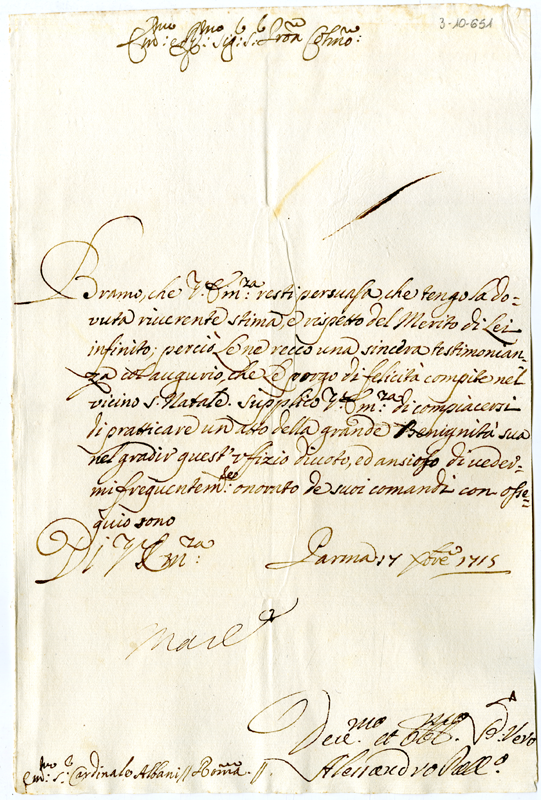 3-10-651
Em:mo e Rmo: Sig: S: Prõn Colmo:
Bramo, che V. Emza: resti persuasa, che tengo la do=
vuta riverente stima, e rispetto del Merito di Lei
infinito; perciò Le ne reco una sincera testimonian,
za coll'augurio, che Le porgo di felicità compite nel
vicino S. Natale. Supplico V. Emza: di compiacersi
di pratticare un atto della grande Benignità sua
nel gradir quest'uffizio divoto, ed ansioso di veder,
mi frequentem:te onorato de suoi comandi con osse=
quio sono
Di V. Emza:
Parma 17 Xbre 1715
Devmo et Obmo Se Vero
Alessandro
Em:mo S: Cardinale Albani // Roma //.